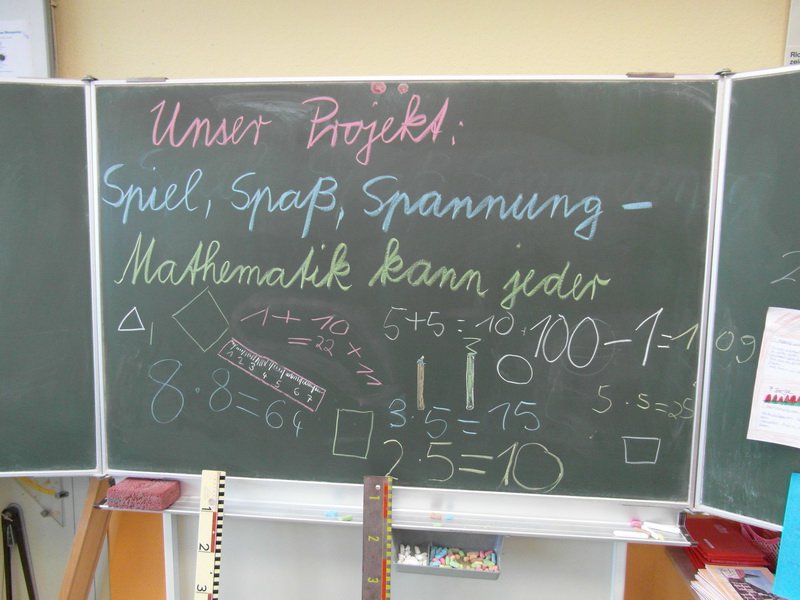 Unser Projekt:
Spiel, Spaß, Spannung –
Mathematik kann jeder
1 + 10
= 22 × 11
5+5 = 10
100 – 1 = 1 09
8 · 8 = 64
1 2 3 4 5 6 7
3 · 5 = 15
5 · 5 = 25
2 · 5 = 10
1
2
3
1
2
3